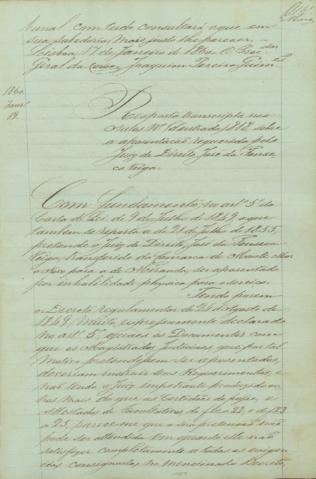 bunal com tudo consultará o que em
sua sabedoria mais justo lhe parecer.
Lisboa, 17 de Janeiro de 1860. O
Geral da Coroa, Joaquim Pereira Guim.es
1860
Janr.º
19.
Resposta transcripta nos
Autos N.º entrada, 1812 sobre
a aposentação requerida pelo
Juiz de Direito, José da Fonse-
ca Veiga.
Com fundamento no art.º 5.º da
Carta de Lei de 9 de Julho de 1849 a que
tambem se reporta a de 21 de Julho de 1855,
pretende o Juiz de Direito, José da Fonseca
Veiga, transferido da Comarca de Monte Mór
o Novo para a de Miranda, ser aposentado
por inhabilidade physica para o serviço.
Tendo porem
o Decreto regulamentar de 24 d'Agosto de
1849 muito expressamente declarado
no art.º 5, quaes os Documentos com
que os Magistrados Judiciaes, que por tal
motivo pretendessem ser aposentados,
deveriam instruir seus Requerimentos, e
não tendo o Juiz impetrante produzido ou-
tros mais do que as Certidões de
Attestados de Facultativos de f. 22, e de f. 23
a 25, parece-me que a sua pretensão não
pode ser attendida em quanto elle não
satisfizer completamente a todas as exigen-
cias consignadas no mencionado Decreto,